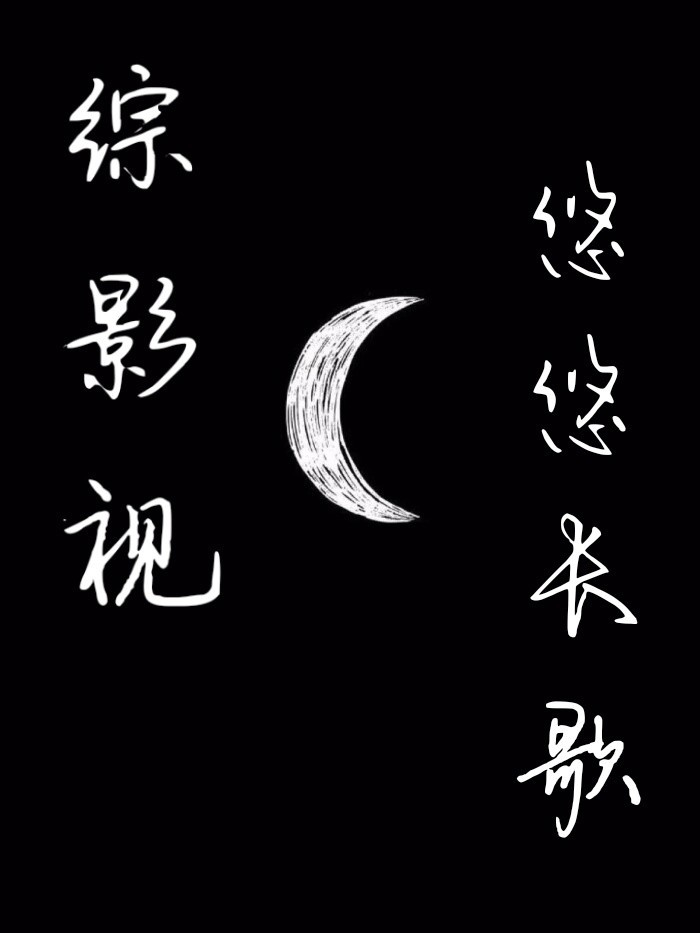 综影视
悠悠长歌